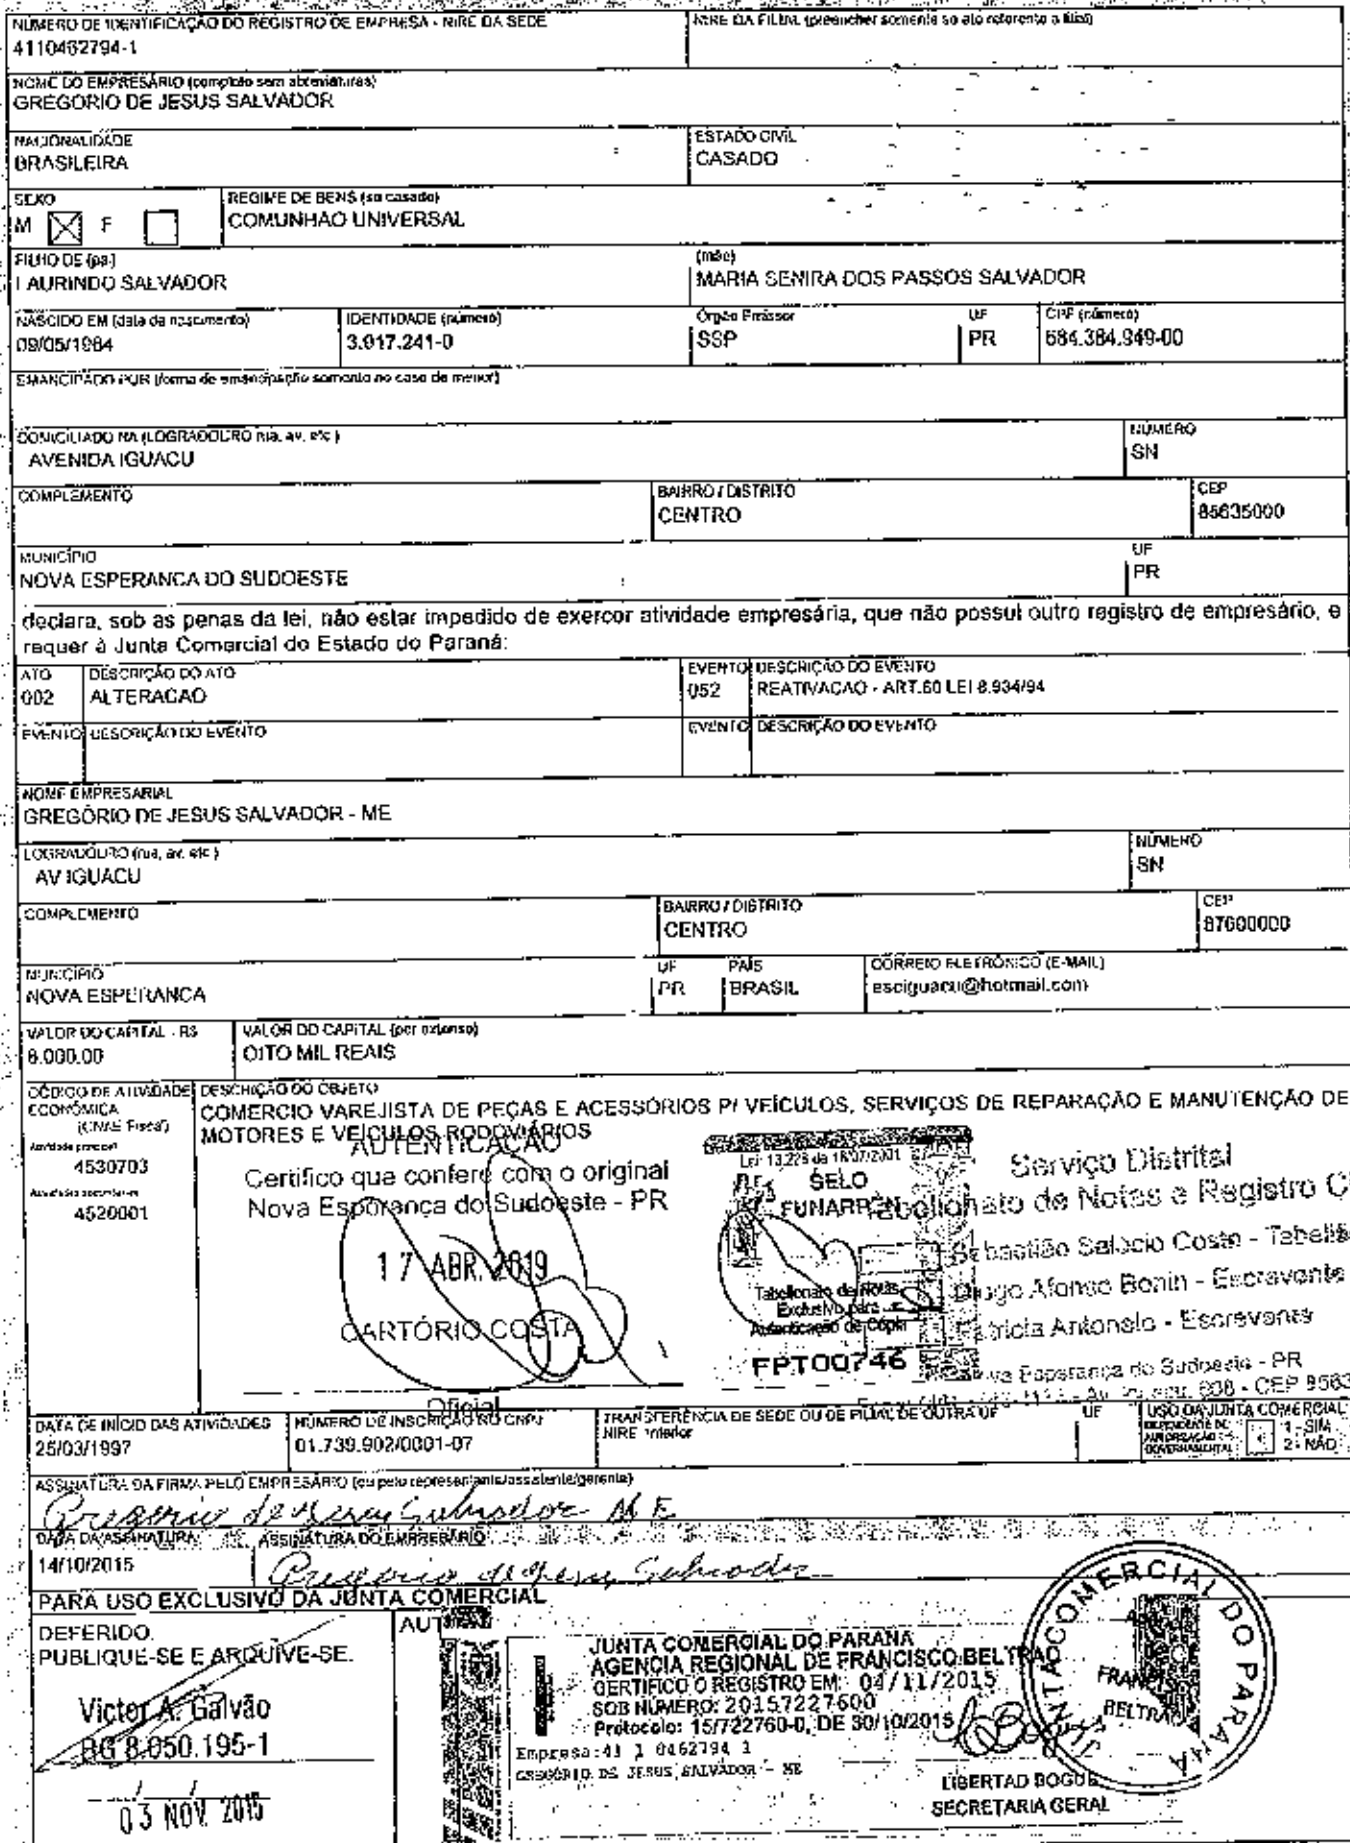 NÚMERO DE IDENTIFICAÇÃO DO REGISTRO DE EMPRESA - NIRE DA SEDE
NIRE DA FILIAL (preencher somente se ato referente a filial)
4110462794-1
NOME DO EMPRESÁRIO (completo sem abreviaturas)
GREGORIO DE JESUS SALVADOR
NACIONALIDADE
ESTADO CIVIL
BRASILEIRA
CASADO
SEXO
REGIME DE BENS (se casado)
M F
COMUNHAO UNIVERSAL
FILHO DE (pai)
(mãe)
LAURINDO SALVADOR
MARIA SENIRA DOS PASSOS SALVADOR
NASCIDO EM (data de nascimento)
IDENTIDADE (número)
Órgão Emissor
UF
CPF (número)
09/05/1964
3.917.241-0
SSP
PR
684.384.949-00
EMANCIPADO POR (forma de emancipação somente no caso de menor)
DOMICILIADO NA (LOGRADOURO rua, av, etc.)
NÚMERO
AVENIDA IGUACU
SN
COMPLEMENTO
BAIRRO / DISTRITO
CEP
CENTRO
85635000
MUNICÍPIO
UF
NOVA ESPERANCA DO SUDOESTE
PR
declara, sob as penas da lei, não estar impedido de exercer atividade empresária, que não possui outro registro de empresário, e
requer à Junta Comercial do Estado do Paraná:
ATO
DESCRIÇÃO DO ATO
EVENTO
DESCRIÇÃO DO EVENTO
002
ALTERACAO
052
REATIVACAO - ART.60 LEI 8.934/94
EVENTO
DESCRIÇÃO DO EVENTO
EVENTO
DESCRIÇÃO DO EVENTO
NOME EMPRESARIAL
GREGÓRIO DE JESUS SALVADOR - ME
LOGRADOURO (rua, av, etc.)
NÚMERO
AV IGUACU
SN
COMPLEMENTO
BAIRRO / DISTRITO
CEP
CENTRO
87600000
MUNICÍPIO
UF
PAÍS
CORREIO ELETRÔNICO (E-MAIL)
NOVA ESPERANCA
PR
BRASIL
esciguacu@hotmail.com
VALOR DO CAPITAL - R$
VALOR DO CAPITAL (por extenso)
8.000,00
OITO MIL REAIS
CÓDIGO DE ATIVIDADE ECONÔMICA
(CNAE Fiscal)
DESCRIÇÃO DO OBJETO
COMERCIO VAREJISTA DE PEÇAS E ACESSÓRIOS P/ VEÍCULOS, SERVIÇOS DE REPARAÇÃO E MANUTENÇÃO DE
MOTORES E VEÍCULOS RODOVIÁRIOS
Atividade principal
4530703
Atividades secundárias
4520001
AUTENTICAÇÃO
Certifico que confere com o original
Nova Esperança do Sudoeste - PR
17 ABR. 2019
CARTÓRIO COSTA
Oficial
Lei 13.228 de 18/07/2001
SELO
FUNARPEN
Tabelionato de Notas
Exclusivo para
Autenticação de Cópia
FPT00746
Serviço Distrital
Tabelionato de Notas e Registro C
Sebastião Salocio Costa - Tabeliã
Diogo Afonso Bonin - Escrevente
Patricia Antonelo - Escrevente
Nova Esperança do Sudoeste - PR
DATA DE INÍCIO DAS ATIVIDADES
NÚMERO DE INSCRIÇÃO NO CNPJ
TRANSFERÊNCIA DE SEDE OU DE FILIAL DE OUTRA UF
NIRE anterior
UF
USO DA JUNTA COMERCIAL
DEPENDENTE DE
AUTORIZAÇÃO
GOVERNAMENTAL
1 - SIM
2 - NÃO
25/03/1997
01.739.902/0001-07
ASSINATURA DA FIRMA PELO EMPRESÁRIO (ou pelo representante/assistente/gerente)
Gregorio de Jesus Salvador ME
DATA DA ASSINATURA
ASSINATURA DO EMPRESÁRIO
14/10/2015
Gregorio de Jesus Salvador
PARA USO EXCLUSIVO DA JUNTA COMERCIAL
DEFERIDO.
PUBLIQUE-SE E ARQUIVE-SE.
Victor A. Galvão
RG 8.050.195-1
03 NOV. 2015
JUNTA COMERCIAL DO PARANA
AGENCIA REGIONAL DE FRANCISCO BELTRAO
CERTIFICO O REGISTRO EM: 04/11/2015
SOB NÚMERO: 20157227600
Protocolo: 15/722760-0, DE 30/10/2015
Empresa:41 1 0462794 1
GREGÓRIO DE JESUS SALVADOR - ME
LIBERTAD BOGUS
SECRETARIA GERAL
JUNTA COMERCIAL DO PARANÁ